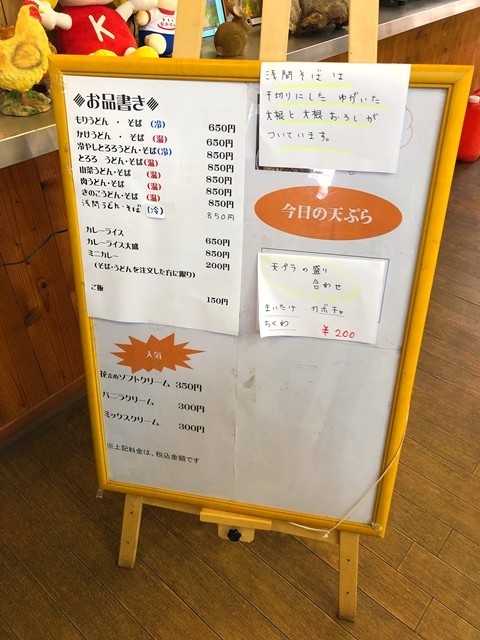 K
◆お品書き◆
もりうどん・そば (冷) 650円
かけうどん・そば (温) 650円
冷やしとろろうどん・そば(冷) 850円
とろろ うどん・そば(温) 850円
山菜うどん・そば (温) 850円
肉うどん・そば (温) 850円
きのこうどん・そば (温) 850円
浅間うどん・そば (冷) 850円
カレーライス 650円
カレーライス大盛 850円
ミニカレー 200円
(そば・うどんを注文した方に限り)
ご飯 150円
人気
花まめソフトクリーム 350円
バニラクリーム 300円
ミックスクリーム 300円
※上記料金は、税込金額です
浅間そばは
千切りにした ゆがいた
大根と大根おろしが
ついています。
今日の天ぷら
天ぷらの盛り
合わせ
まいたけ カボチャ
ちくわ ¥200